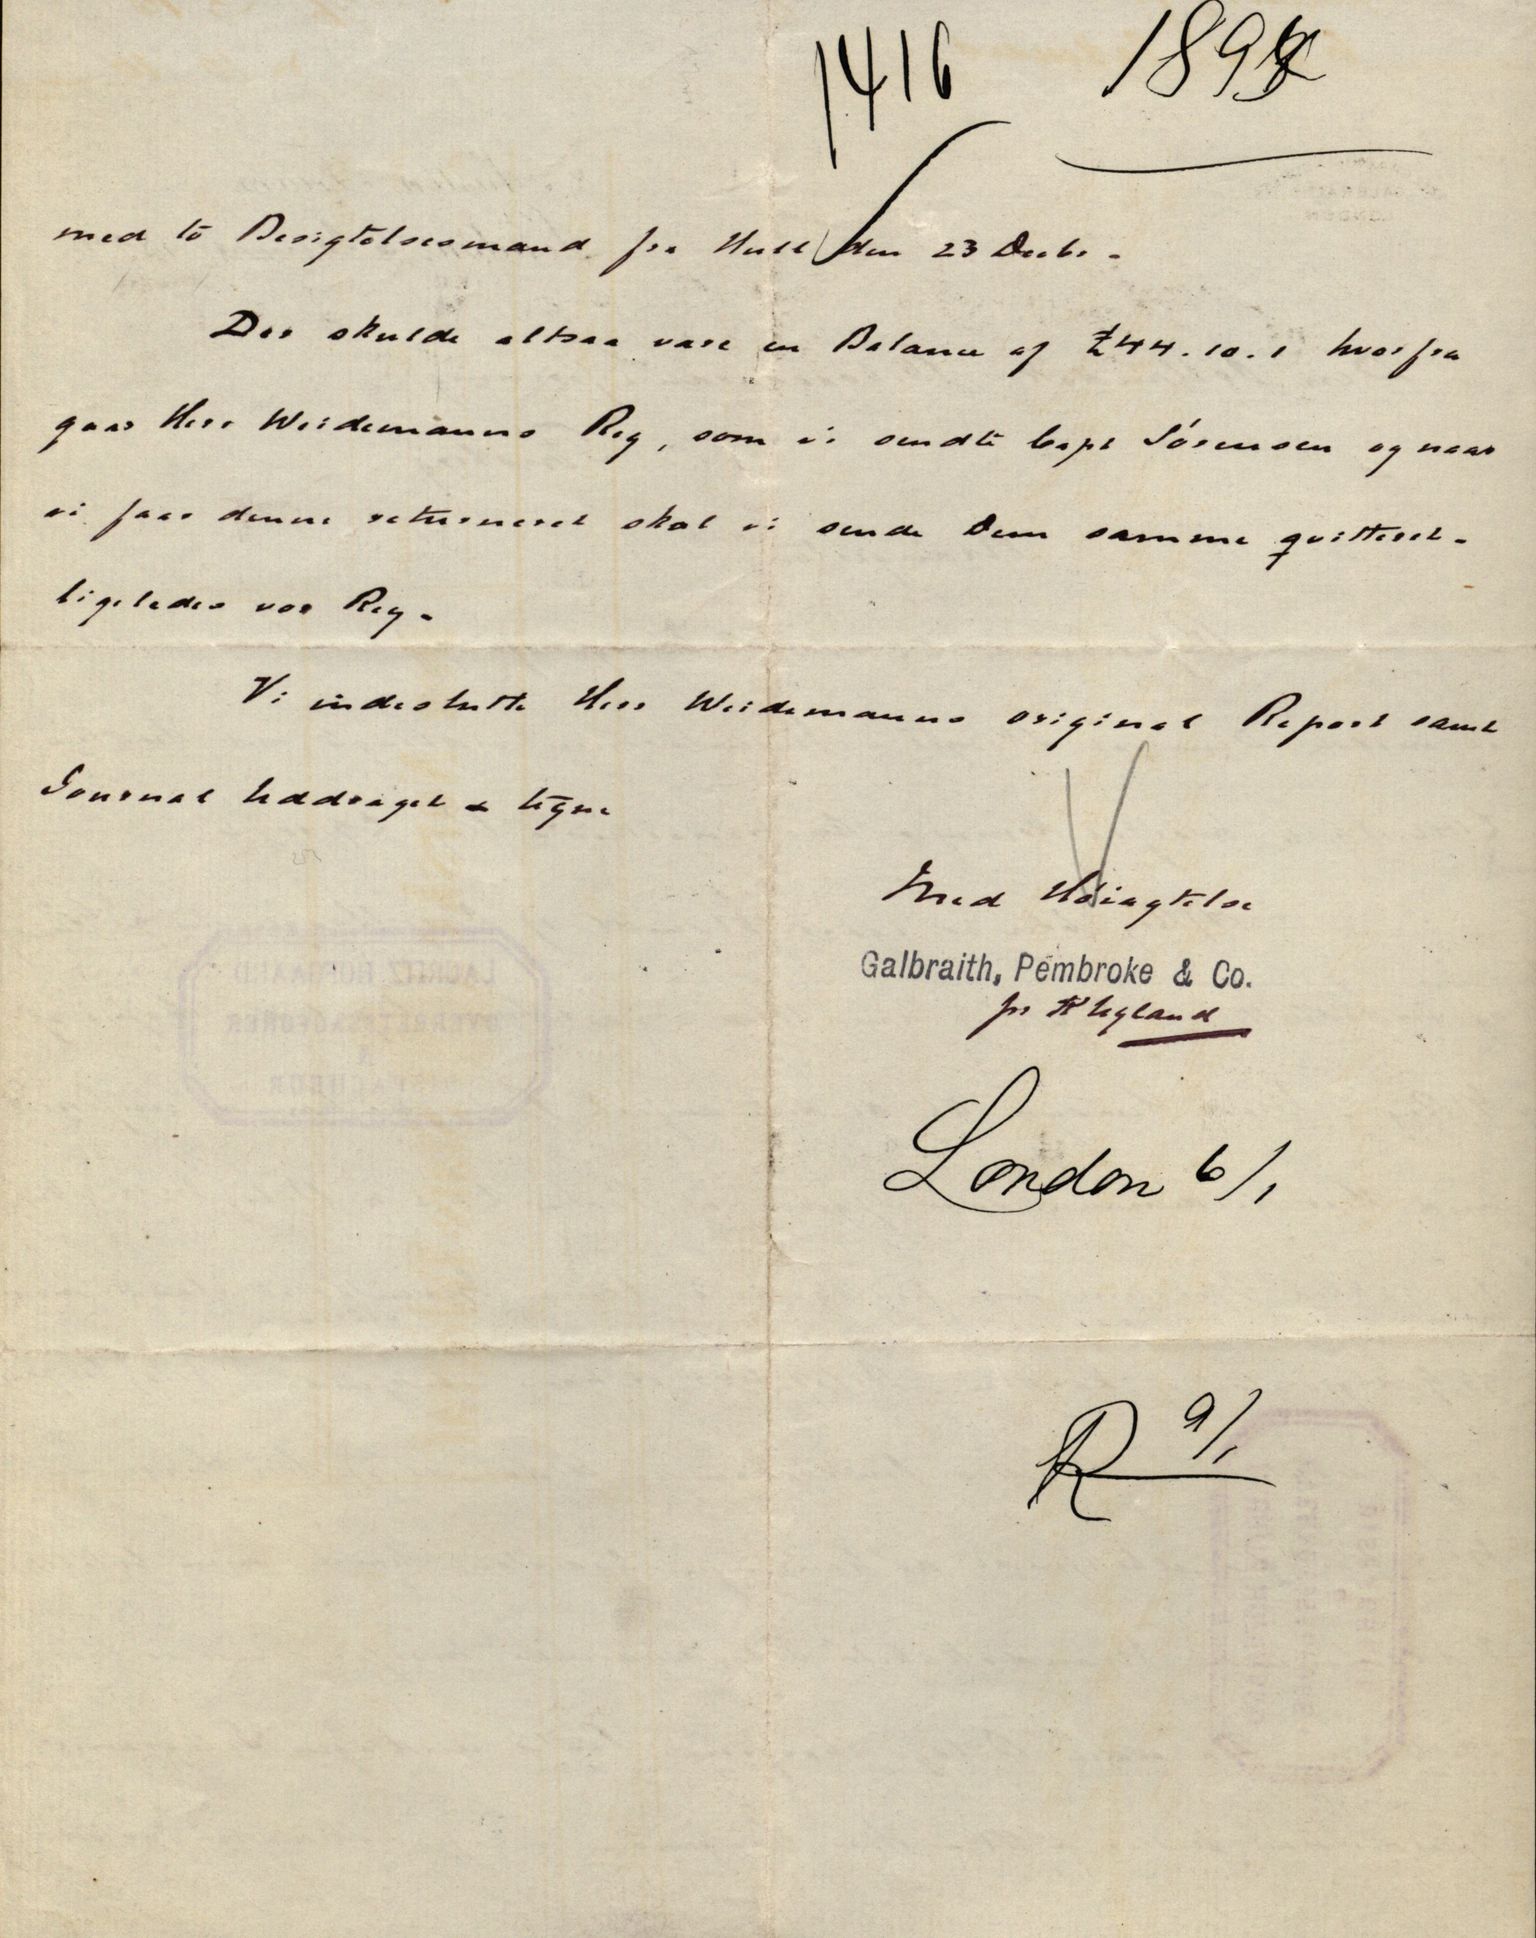 1416 189
med to Besigtelsesmænd fra Hull den 23 Decbr.
Der skulde altsaa være en Balance af £44.10.1 hvorfra
gaar Herr Weidemanns Reg, som vi sendte Capt Sörensen og naar
vi faar denne returneret skal vi sende Dem samme qvitteret.
ligeledes vor Reg.
Vi indeslutte Herr Weidemanns original Report samt
Journal Uddraget & tegne
Med Høiagtelse
Galbraith, Pembroke & Co.
pr
London 6/1
R 9/1